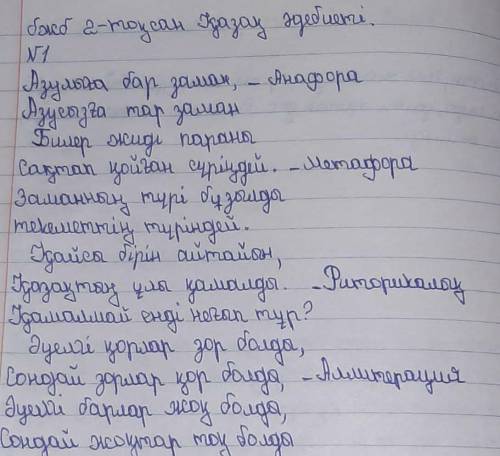 бжб 2-тоқсан Қазақ әдебиеті.
№1
Азулыға бар заман, - Анафора
Азусызға тар заман
Билер жиді параны
Сақтап қойған сүріндей. - Метафора
Заманның түрі бұзылды
текеметтің түріндей.
Қайсы бірін айтайын,
Қазақтың ұлы қамалды. - Риторикалық
Қамалмай енді неғып тұр?
Әуелгі қорлар зор болды,
Сондай зорлар қор болды, - Аллитерация
Әуелгі барлар жоқ болды,
Сондай жоқтар тоқ болды